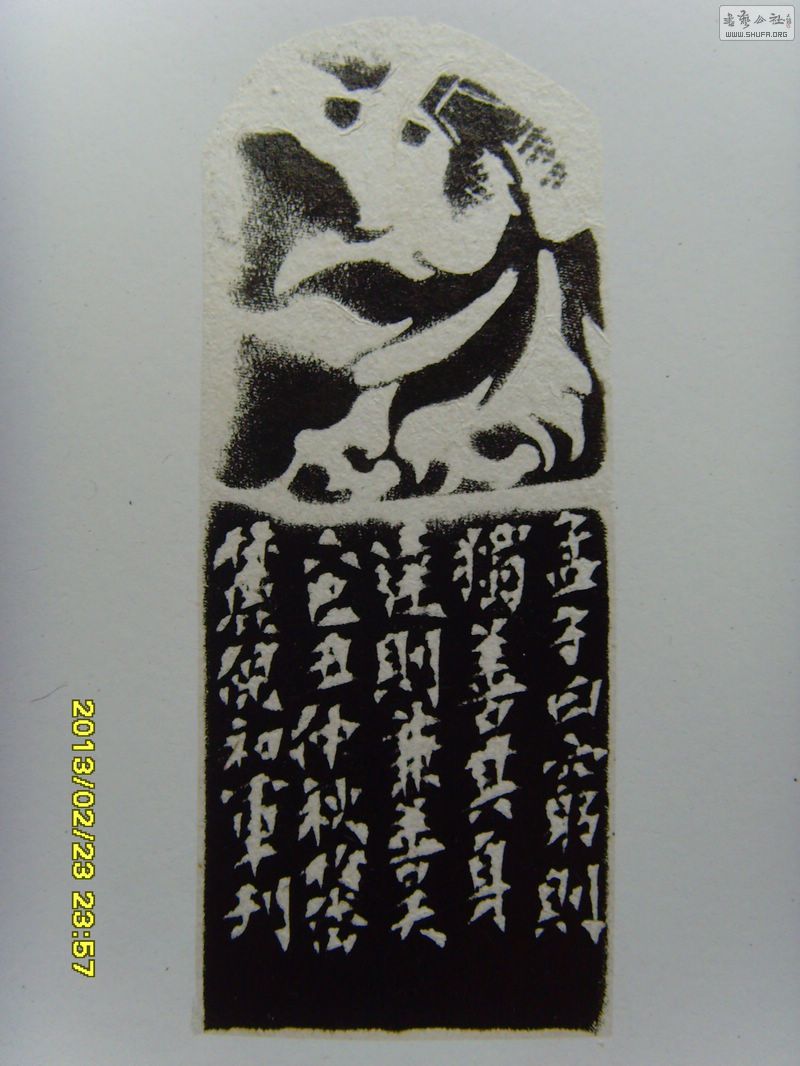 孟子曰穷則
獨善其身
達則兼善天
下己丑仲秋
初軍刊
2013/02/23 23:57
書藝公社
WWW.SHUFA.ORG